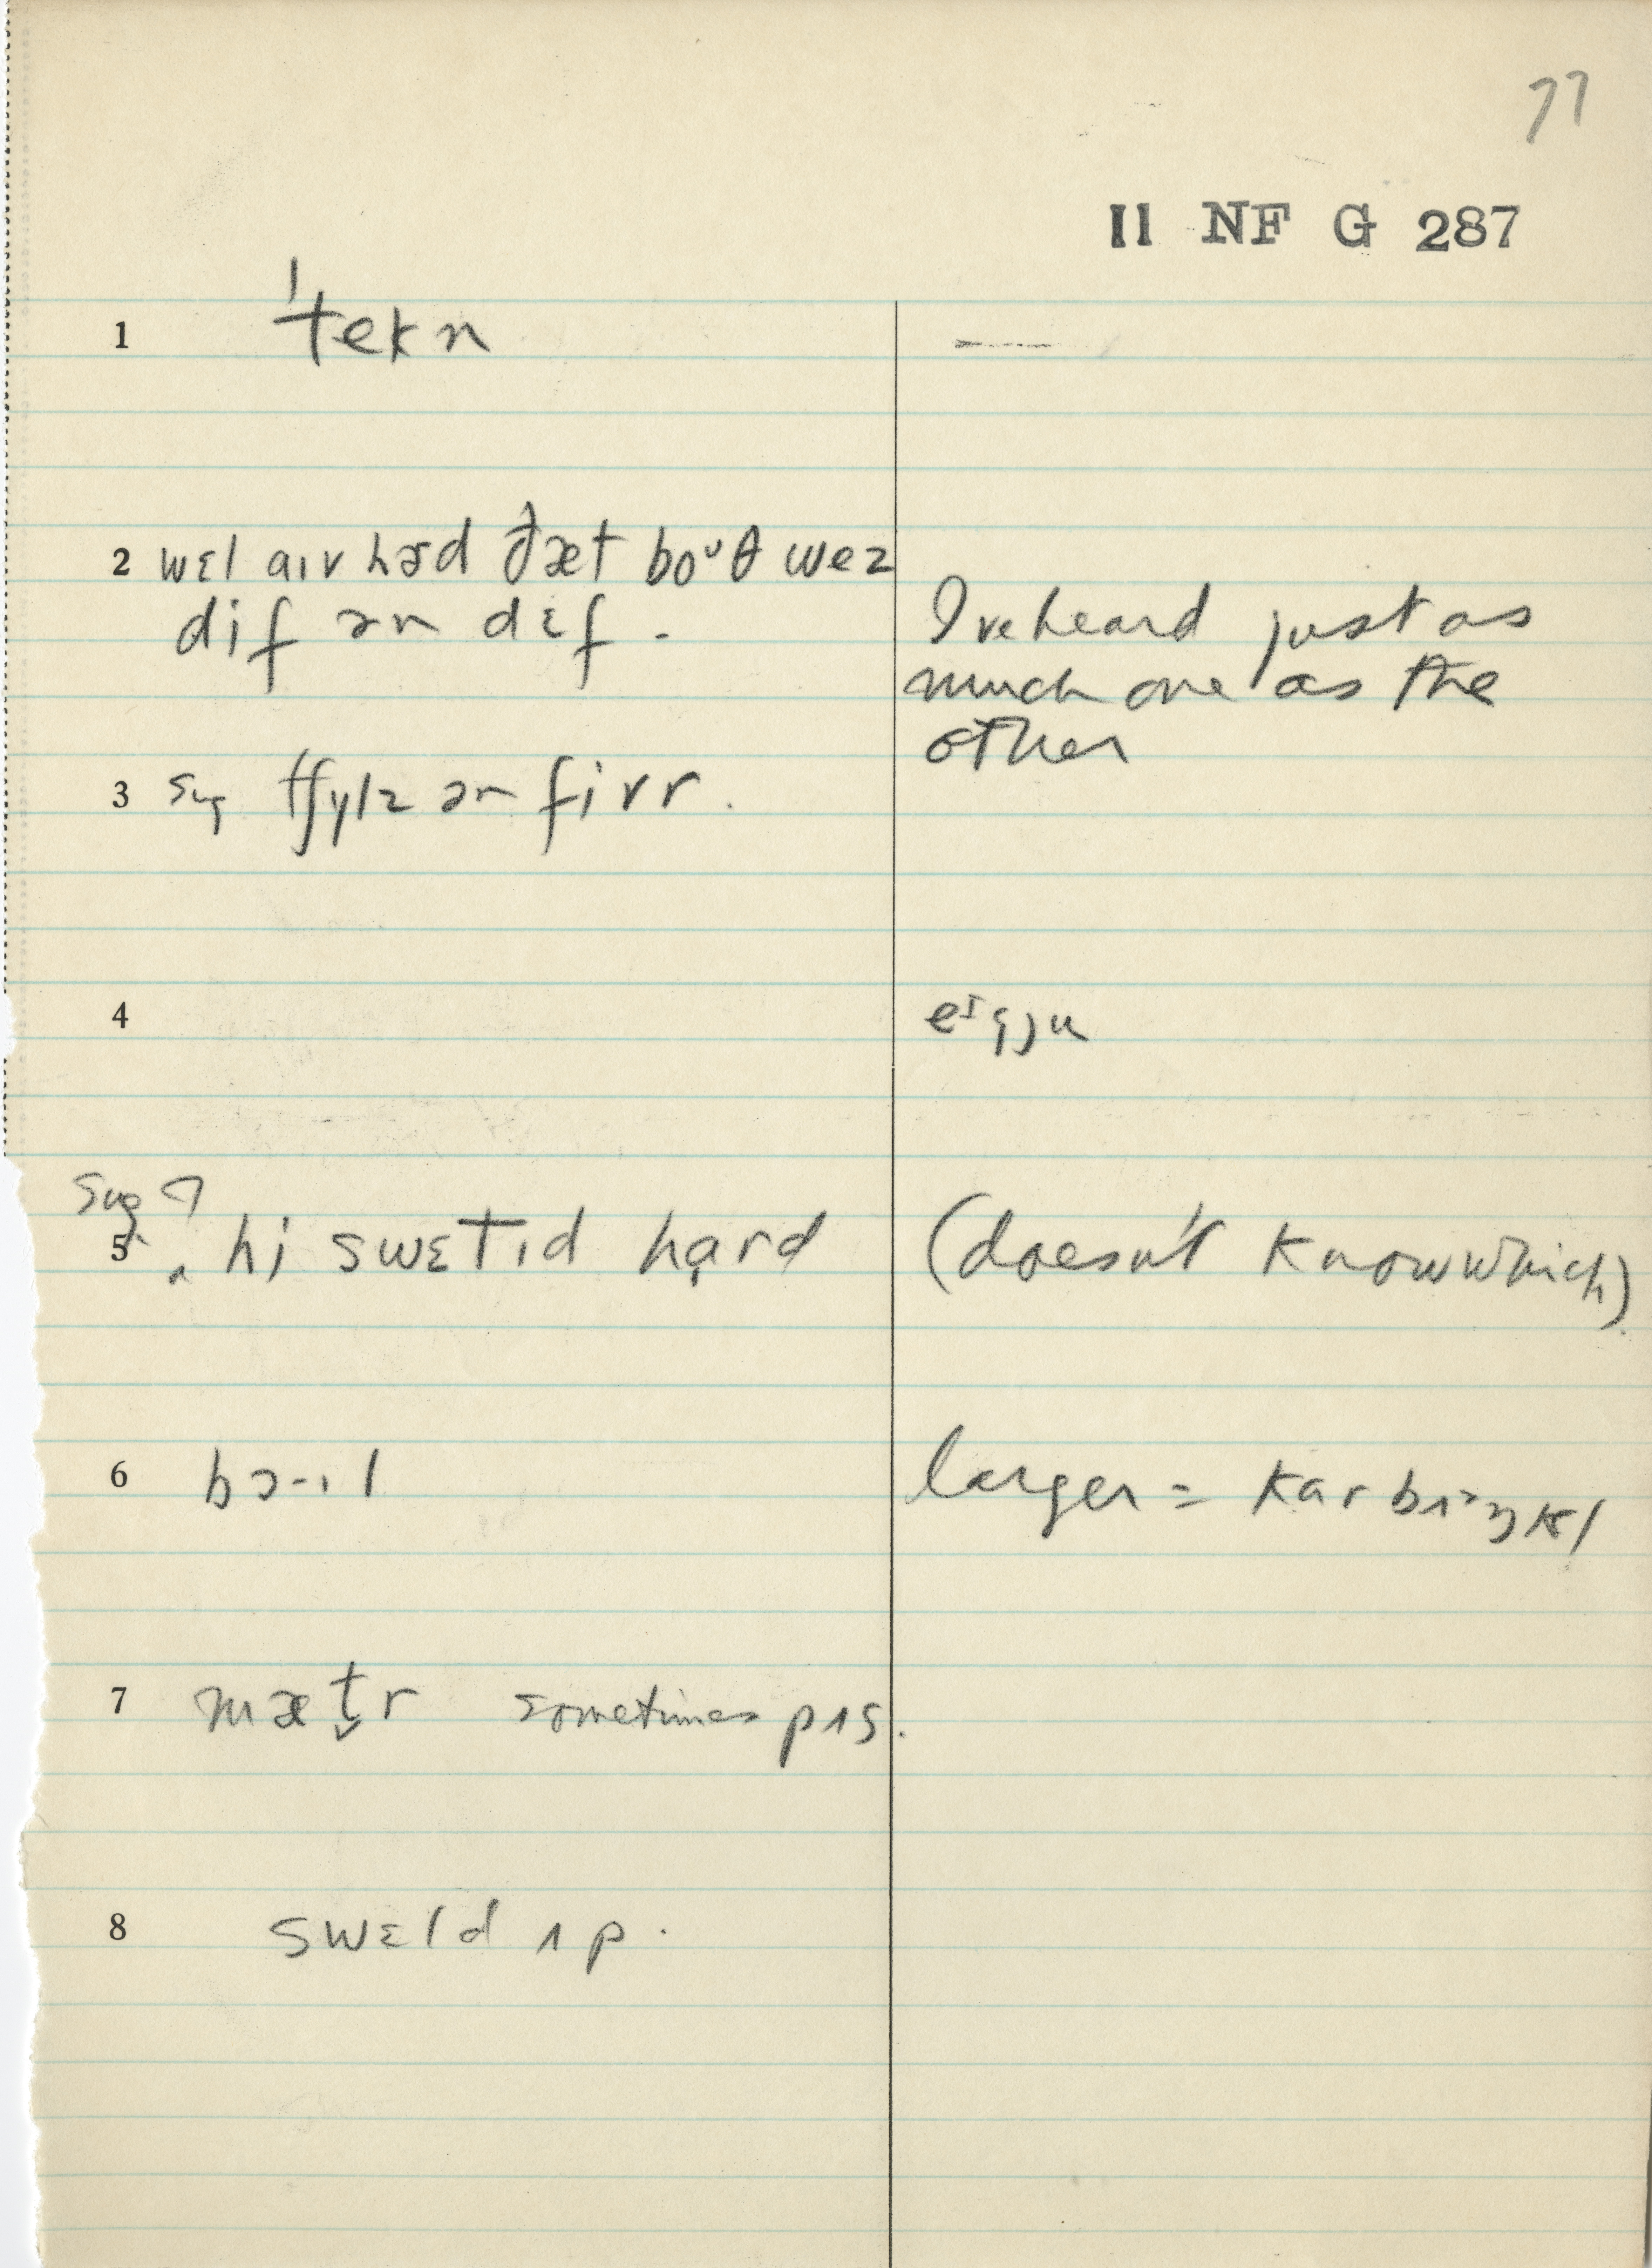 77
II NF G 287
1 ˈtekn
2 wɛl aɪv hɚd ðæt boᶷθ wez
dif ən dɛf. I've heard just as
much one as the
other
3 sug tʃɪlz ən fivr.
4 eᴵgju
Sug ?
5 hi swɛtɪd hạrd (doesn't know which)
6 bɔ-ɪl larger = karbʌŋkl
7 mæt̬r sometimes pʌs.
8 swɛld ʌp.